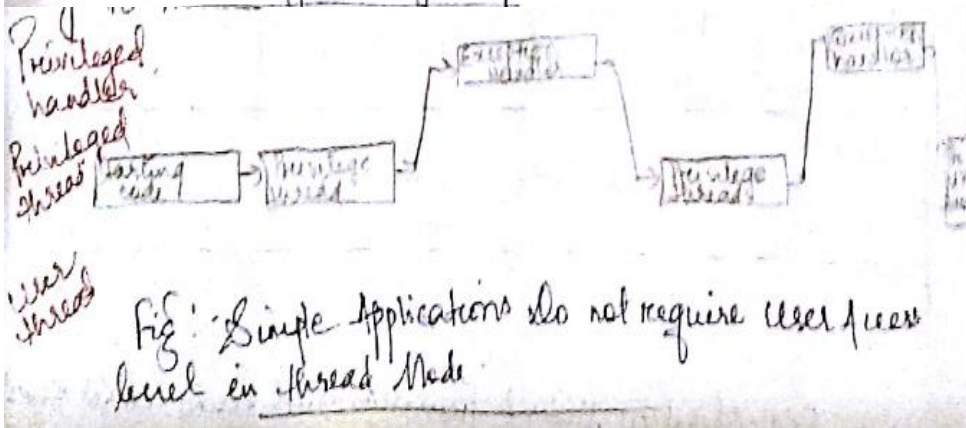 Privileged
handler
Privileged
thread
Starting
code
Privilege
thread
Exception
handler
Privilege
thread
handler
User
thread
Fig: Simple Applications Do not require User Access
level in thread Mode